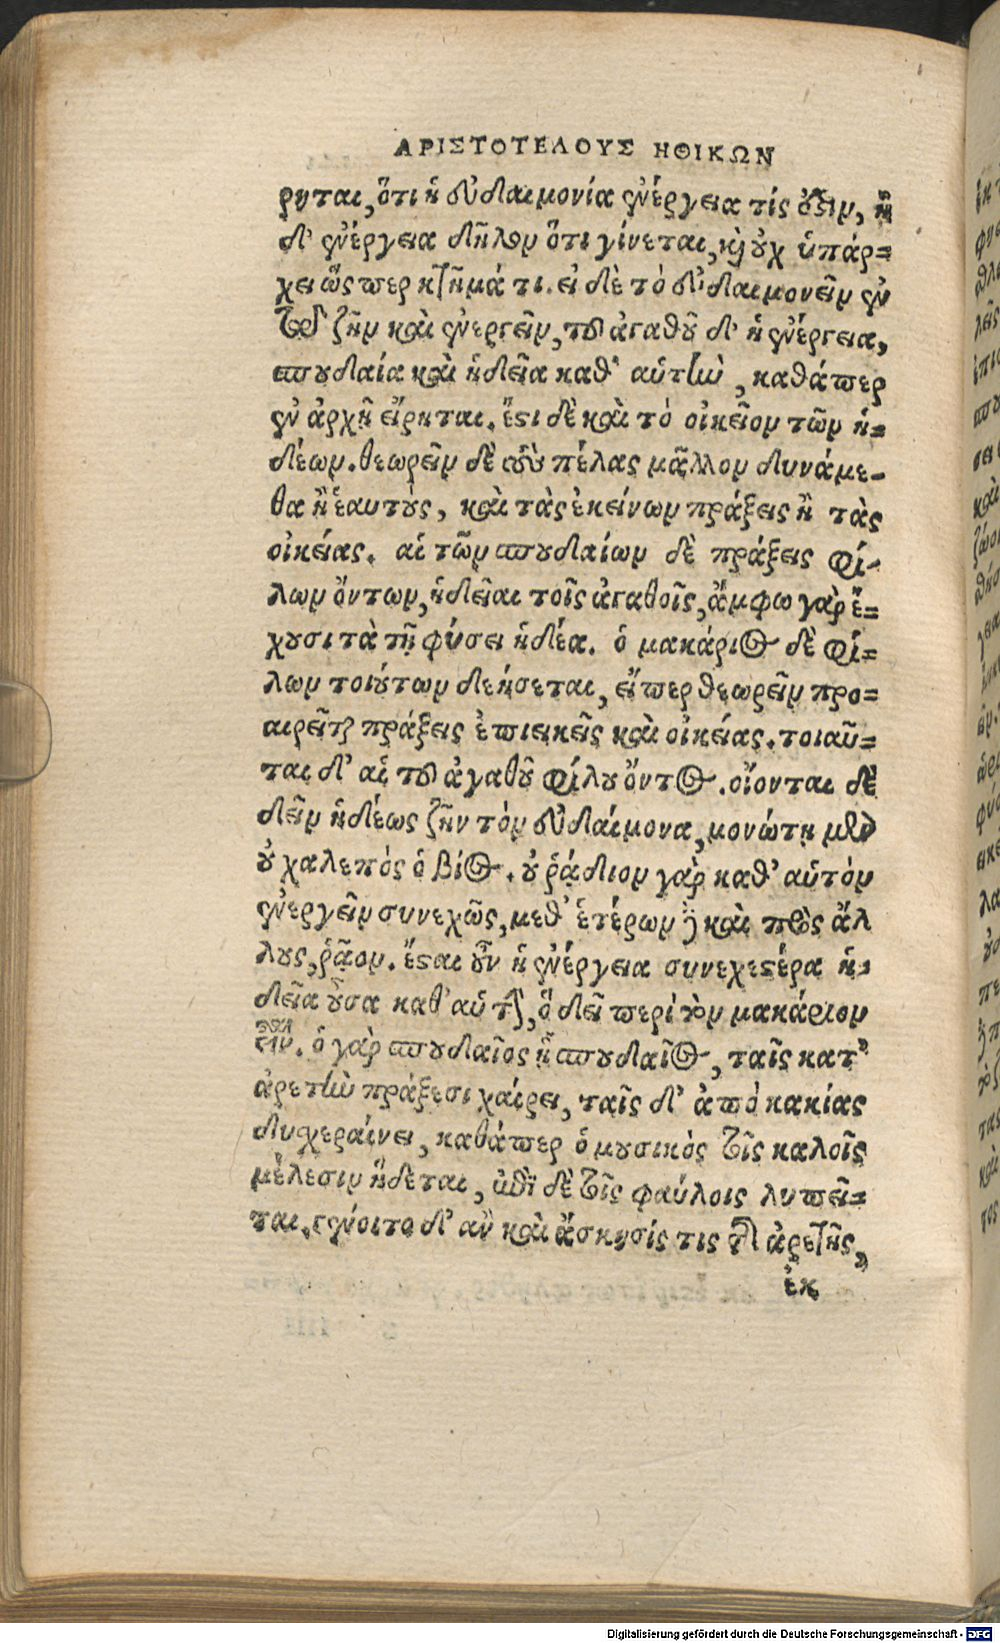 ΑΡΙΣΤΟΤΕΛΟΥΣ ΗΘΙΚΩΝ
ρηται, ὅτι ἡ εὐδαιμονία ἐνέργεια τίς ἐστιν, ἡ
δ' ἐνέργεια δῆλον ὅτι γίνεται, καὶ οὐχ ὑπάρ=
χει ὥσπερ κτῆμά τι. εἰ δὲ τὸ εὐδαιμονεῖν ἐν
τῷ ζῆν καὶ ἐνεργεῖν, τοῦ ἀγαθοῦ δ' ἡ ἐνέργεια,
σπουδαία καὶ ἡδεῖα καθ' αὑτὴν, καθάπερ
ἐν ἀρχῇ εἴρηται. ἔστι δὲ καὶ τὸ οἰκεῖον τῶν ἡ=
δέων. θεωρεῖν δὲ τοὺς πέλας μᾶλλον δυνάμε-
θα ἢ ἑαυτοὺς, καὶ τὰς ἐκείνων πράξεις ἢ τὰς
οἰκείας. αἱ τῶν σπουδαίων δὲ πράξεις φί-
λων ὄντων, ἡδεῖαι τοῖς ἀγαθοῖς, ἄμφω γὰρ ἔ=
χουσι τὰ τῇ φύσει ἡδέα. ὁ μακάριος δὲ φί=
λων τοιούτων δεήσεται, εἴπερ θεωρεῖν προ=
αιρεῖται πράξεις ἐπιεικεῖς καὶ οἰκείας. τοιαῦ=
ται δ' αἱ τοῦ ἀγαθοῦ φίλου ὄντος. οἴονται δὲ
δεῖν ἡδέως ζῆν τὸν εὐδαίμονα, μονώτῃ μὲν
οὖ χαλεπὸς ὁ βίος. οὐ ῥᾴδιον γὰρ καθ' αὑτὸν
ἐνεργεῖν συνεχῶς, μεθ' ἑτέρων δὲ καὶ πρὸς ἄλ
λους, ῥᾷον. ἔσται οὖν ἡ ἐνέργεια συνεχεστέρα ἡ=
δεῖα οὖσα καθ' αὑτὴν, ὃ δεῖ περὶ τὸν μακάριον
εἶναι. ὁ γὰρ σπουδαῖος ᾗ σπουδαῖος, ταῖς κατ'
ἀρετὴν πράξεσι χαίρει, ταῖς δ' ἀπὸ κακίας
δυσχεραίνει, καθάπερ ὁ μουσικὸς τοῖς καλοῖς
μέλεσιν ἥδεται, ἐπὶ δὲ τοῖς φαύλοις λυπεῖ=
ται. γένοιτο δ' ἂν καὶ ἄσκησίς τις τῆς ἀρετῆς,
ἐκ
Digitalisierung gefördert durch die Deutsche Forschungsgemeinschaft - DFG